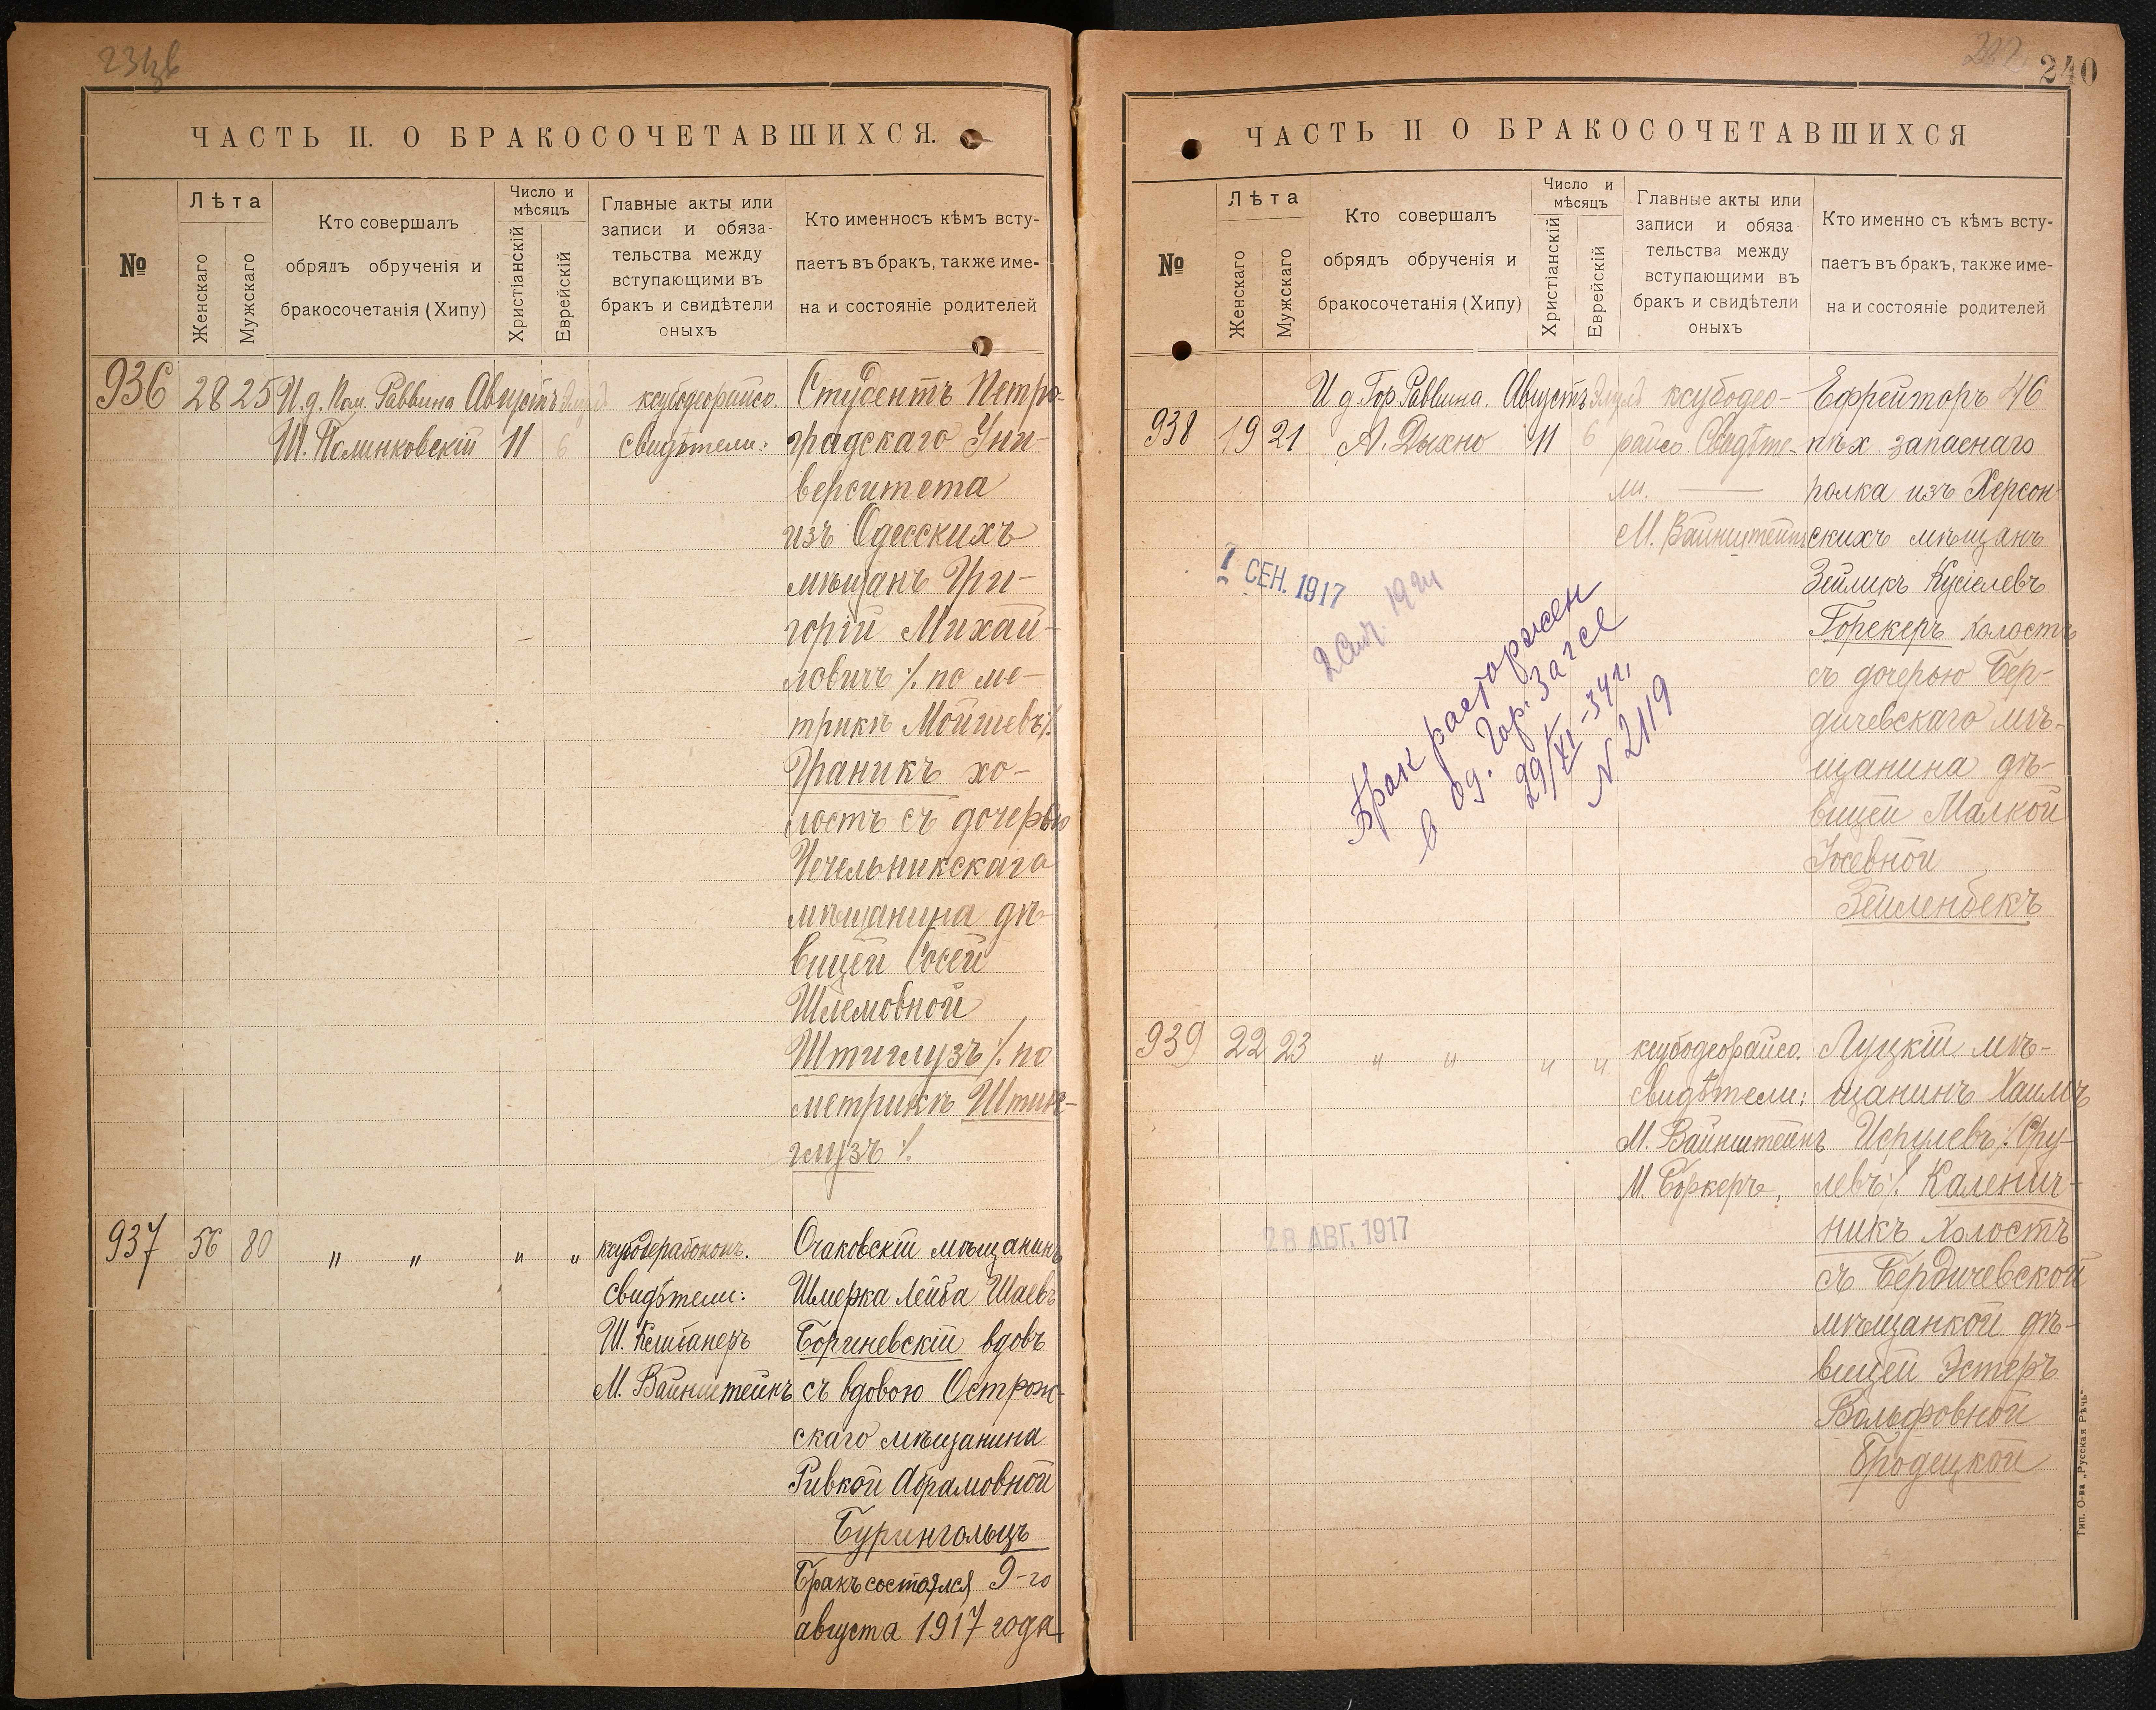 ЧАСТЬ II. О БРАКОСОЧЕТАВШИХСЯ.
№
Лѣта
Женскаго
Мужскаго
Кто совершалъ
обрядъ обрученія и
бракосочетанія (Хипу)
Число и
мѣсяцъ
Христіанскій
Еврейскій
Главные акты или
записи и обяза-
тельства между
вступающими въ
бракъ и свидѣтели
оныхъ
Кто именносъ кѣмъ всту-
паетъ въ бракъ, также име-
на и состояніе родителей
936
28
25
И.д. Пом. Раввина
Ш. Полинковскій
Августъ
11
6
ксубодеорайсо.
свидѣтели:
Студентъ Петро-
градскаго Уни-
верситета
изъ Одесскихъ
мѣщанъ Гри-
горій Михай-
ловичъ /. по ме-
трикѣ Мойшевъ /.
Граникъ хо-
лостъ съ дочерью
Чечельникскаго
мѣщанина дѣ-
вицей Сосей
Шлемовной
Штиглузъ /. по
метрикѣ
глузъ /.
937
56
80
" "
"
"
свидѣтели:
М. Вайнштейнъ
Очаковскій мѣщанинъ
Шмерка Лейба Шаевъ
вдовъ
съ вдовою Острож-
скаго мѣщанина
Ривкой Абрамовной
Бурингольцъ
Бракъ состоялся 9-го
августа 1917 года
240
ЧАСТЬ II О БРАКОСОЧЕТАВШИХСЯ
№
Лѣта
Женскаго
Мужскаго
Кто совершалъ
обрядъ обрученія и
бракосочетанія (Хипу)
Число и
мѣсяцъ
Христіанскій
Еврейскій
Главные акты или
записи и обяза
тельства между
вступающими въ
бракъ и свидѣтели
оныхъ
Кто именно съ кѣмъ всту-
паетъ въ бракъ, также име-
на и состояніе родителей
938
19
21
И д Гор Раввина.
А. Дыхно
Августъ
11
6
Элулъ
ксубодео-
райсо. Свидѣте-
ли.
М. Вайнштейнъ
Ефрейторъ 46
пѣх. запаснаго
полка изъ Херсон-
скихъ мѣщанъ
Зейликъ Кусіелевъ
Горекеръ холостъ
съ дочерью Бер-
дичевскаго мѣ-
щанина дѣ-
вицей Малкой
Іосевной
Зейленбекъ
1 СЕН. 1917
Брак расторжен
в Од. Гор. Загсе
29/XI-34 г.
N 2119
939
22
23
" "
"
"
ксубодеорайсо.
свидѣтели:
М. Вайнштейнъ
М. Боркеръ.
Луцкій мѣ-
щанинъ Хаимъ
Исрулевъ /. Сру-
левъ /. Каленич-
никъ холостъ
съ Бердичевской
мѣщанкой дѣ-
вицей Эстеръ
Вольфовной
Бродецкой
28 АВГ. 1917
Тип. О-ва „Русская Рѣчь"